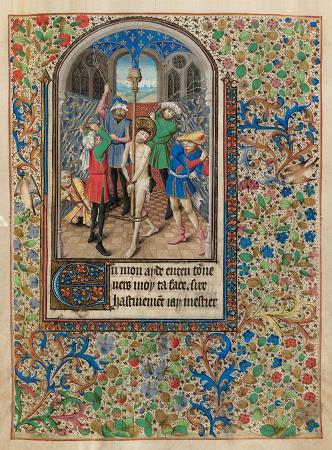 En mon ayde enten tõne
uers moy ta face. sire
hastiuement iay mestier